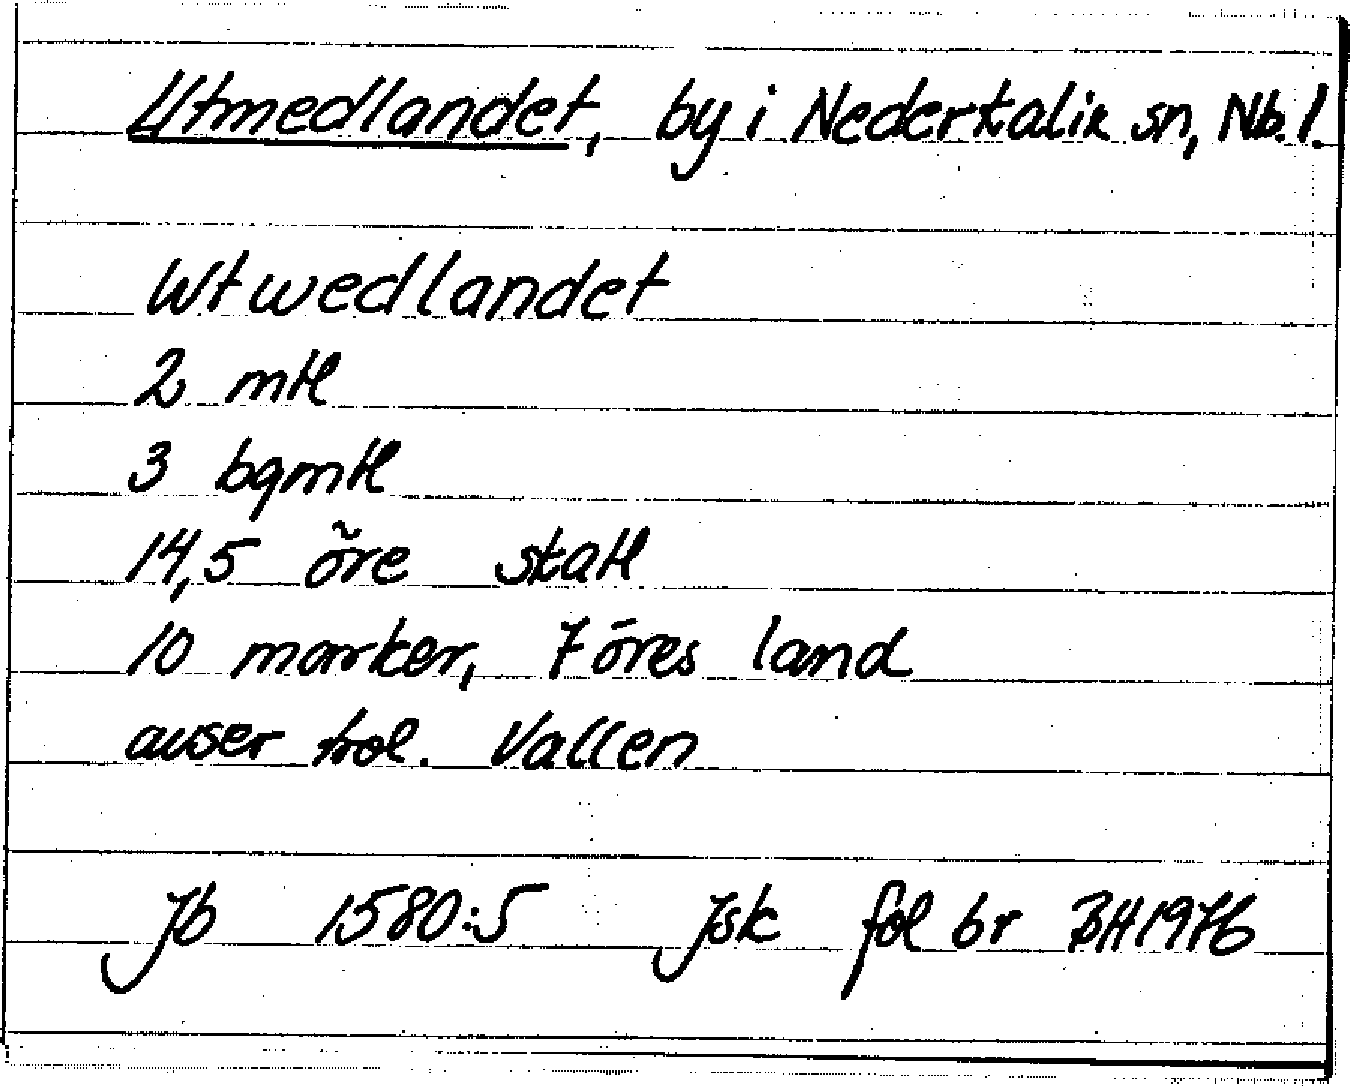 Utmedlandet, by i Nederkalix sn, Nb. l.
Wtwedlandet
2 mtl
3 bgmtl
14,5 öre skatt
10 marker, 7 öres land
auser trol. Vallen
Jb 1580:5 Jsk fol br BH 1976